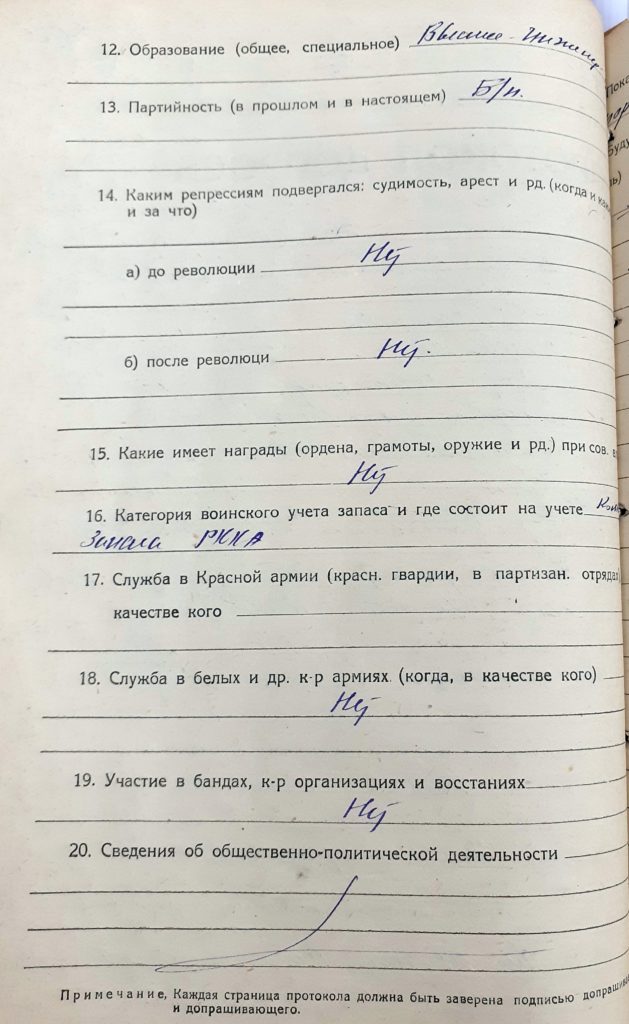 12. Образование (общее, специальное) Высшее - Инженер
13. Партийность (в прошлом и в настоящем) Б/п.
14. Каким репрессиям подвергался: судимость, арест и рд. (когда и
и за что)
а) до революции Нет
б) после революци Нет.
15. Какие имеет награды (ордена, грамоты, оружие и рд.) при сов. в
Нет
16. Категория воинского учета запаса и где состоит на учете
Запаса РККА
17. Служба в Красной армии (красн. гвардии, в партизан. отряда
качестве кого
18. Служба в белых и др. к-р армиях (когда, в качестве кого)
Нет
19. Участие в бандах, к-р организациях и восстаниях
Нет
20. Сведения об общественно-политической деятельности
Примечание, Каждая страница протокола должна быть заверена подписью допрашива
и допрашивающего.